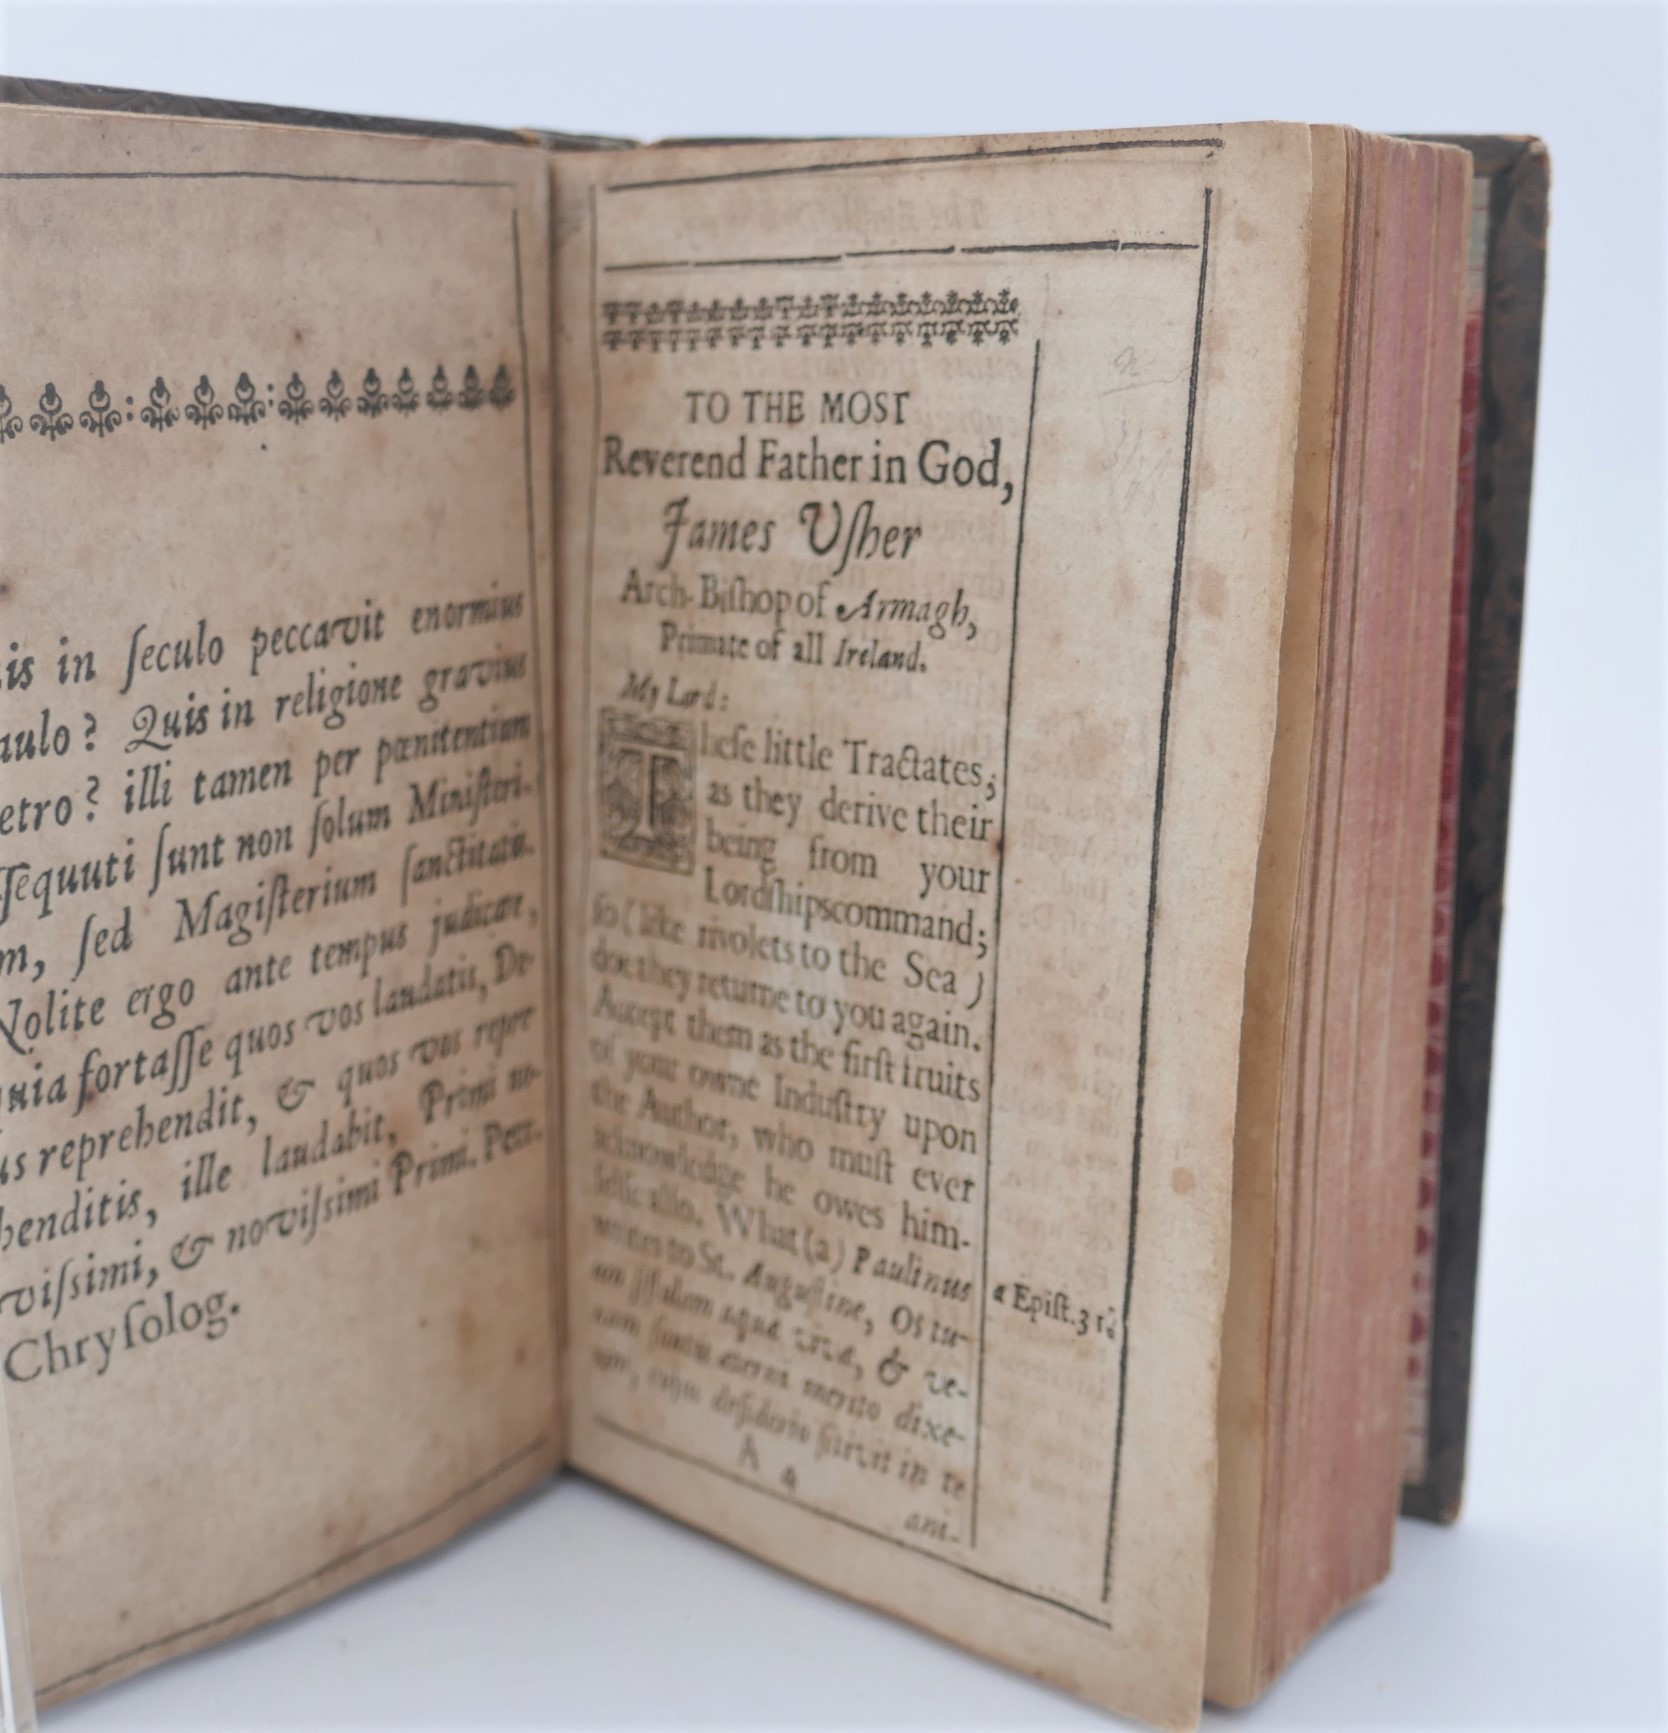 is in ſeculo peccavit enormius
aulo? Quis in religione gravius
etro? illi tamen per pœnitentium
ſſequuti ſunt non ſolum Miniſteri-
m, ſed Magiſterium ſanctitatis.
Nolite ergo ante tempus judicare,
quia fortaſſe quos vos laudatis, De-
us reprehendit, & quos vos repre
henditis, ille laudabit, Primi no-
viſsimi, & noviſsimi Primi. Petr.
Chryſolog.
TO THE MOST
Reverend Father in God,
James Uſher
Arch-Biſhop of Armagh,
Primate of all Ireland.
My Lord:
Theſe little Tractates;
as they derive their
being from your
Lordſhipscommand;
ſo (like rivolets to the Sea)
doe they returne to you again.
Accept them as the firſt fruits
of your owne Induſtry upon
the Author, who muſt ever
acknowledge he owes him-
ſelfe alſo. What (a) Paulinus
writes to St. Auguſtine, Os tu-
um fiſtulam aquæ vivæ, & ve-
nam fontis æterni merito dixe-
rim, cujus deſiderio ſitivit in te
a Epiſt. 31.
A 4
ani-